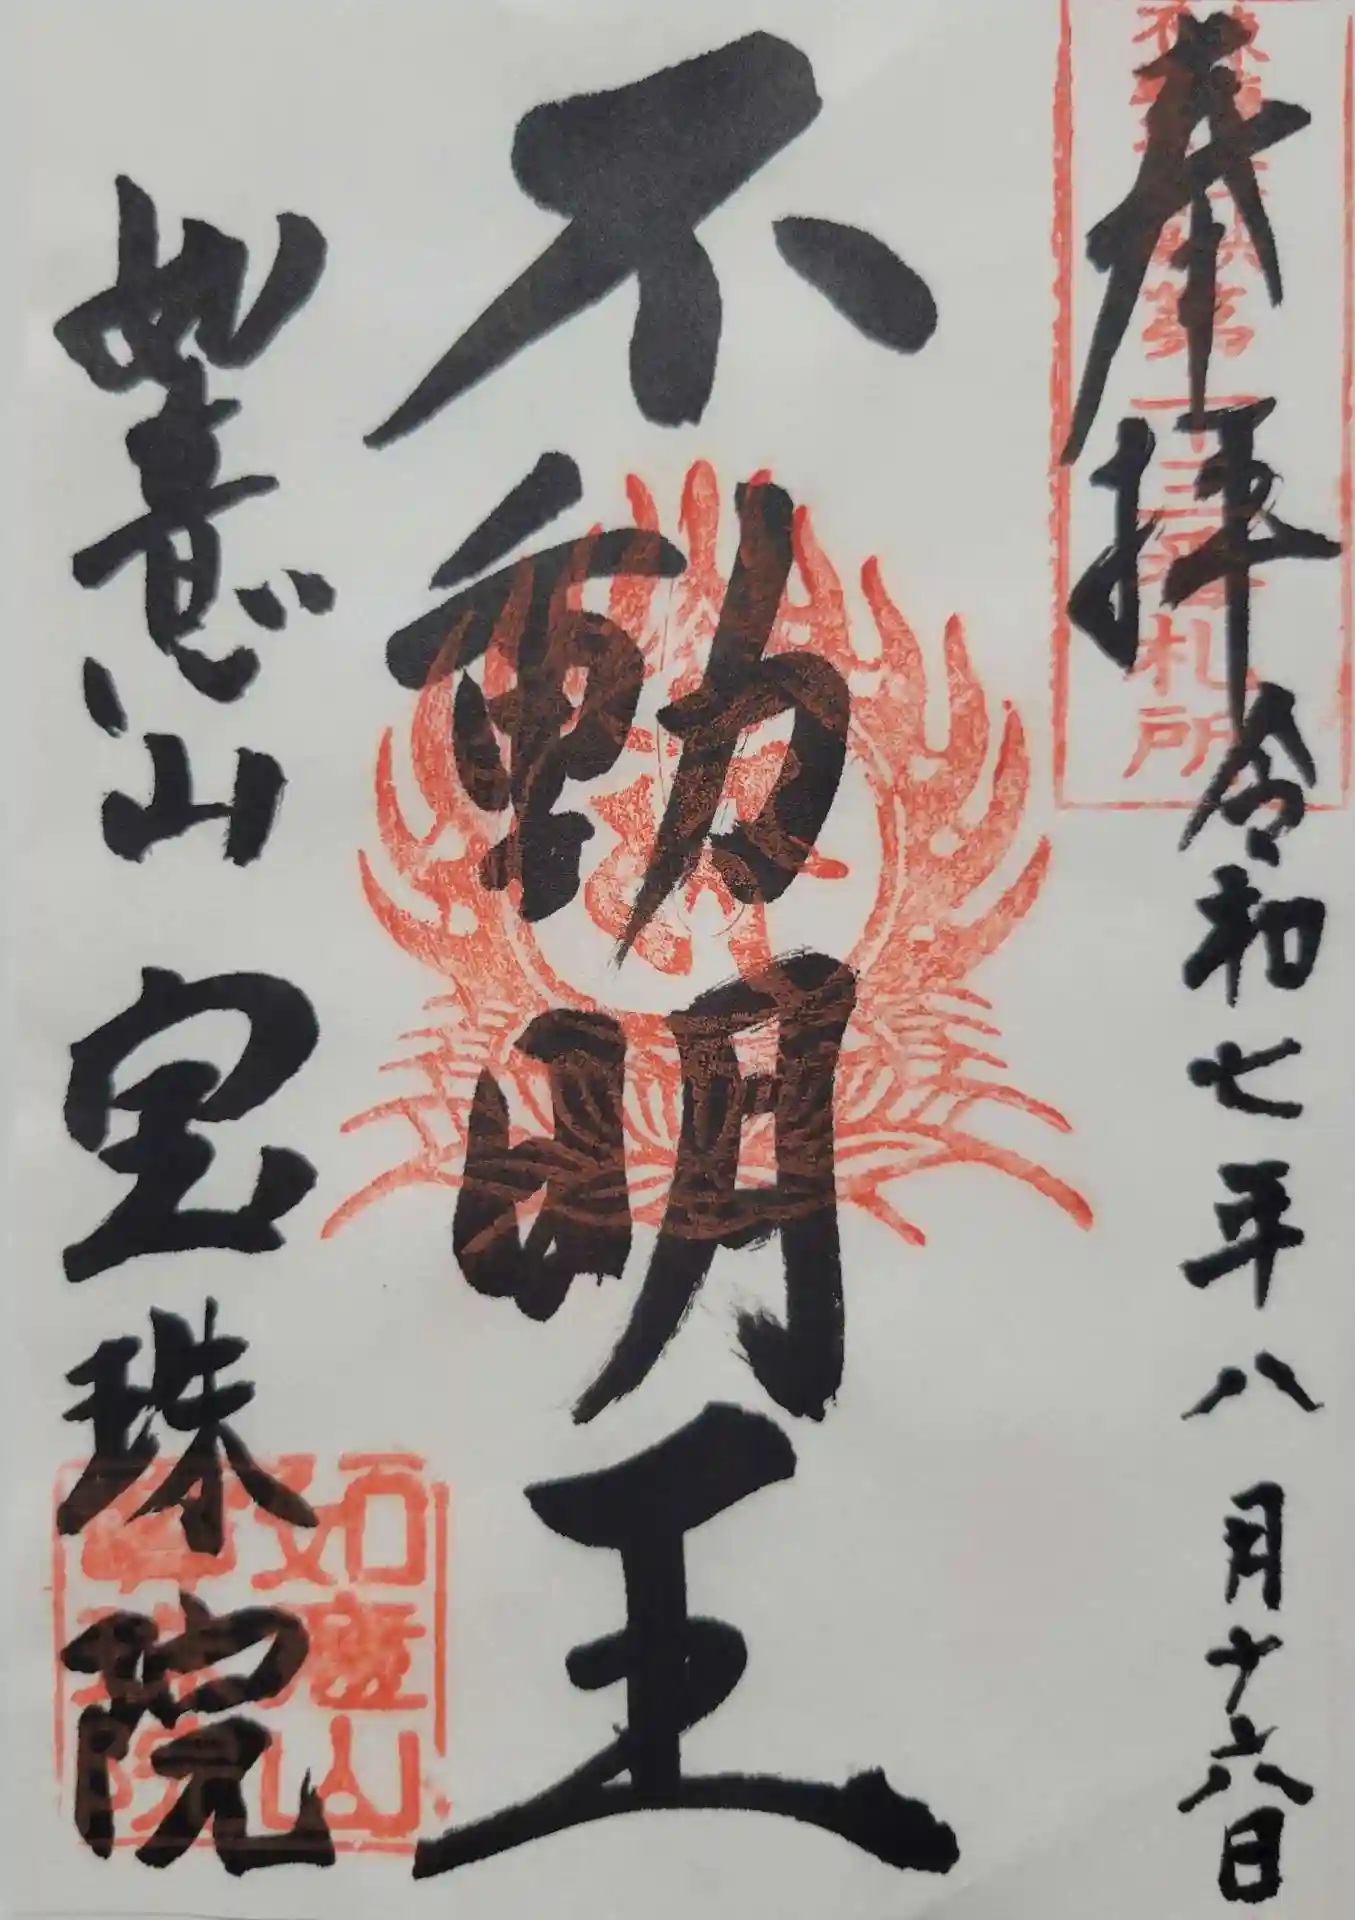 奉拝
令和七年八月十六日
第十三番札所
不動明王
如意山
宝珠院
如意山
宝珠院